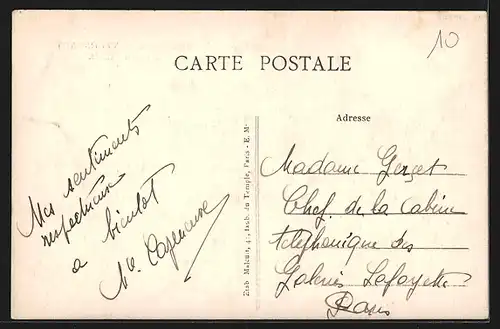 10
CARTE POSTALE
Adresse
Mes sentiments
respectueux
a bientot
Etab Malcuit, 41, faub. du Temple, Paris - E. M.
Madame
Chef. de la cabine
telephonique des
Galeries Lafayette
Paris